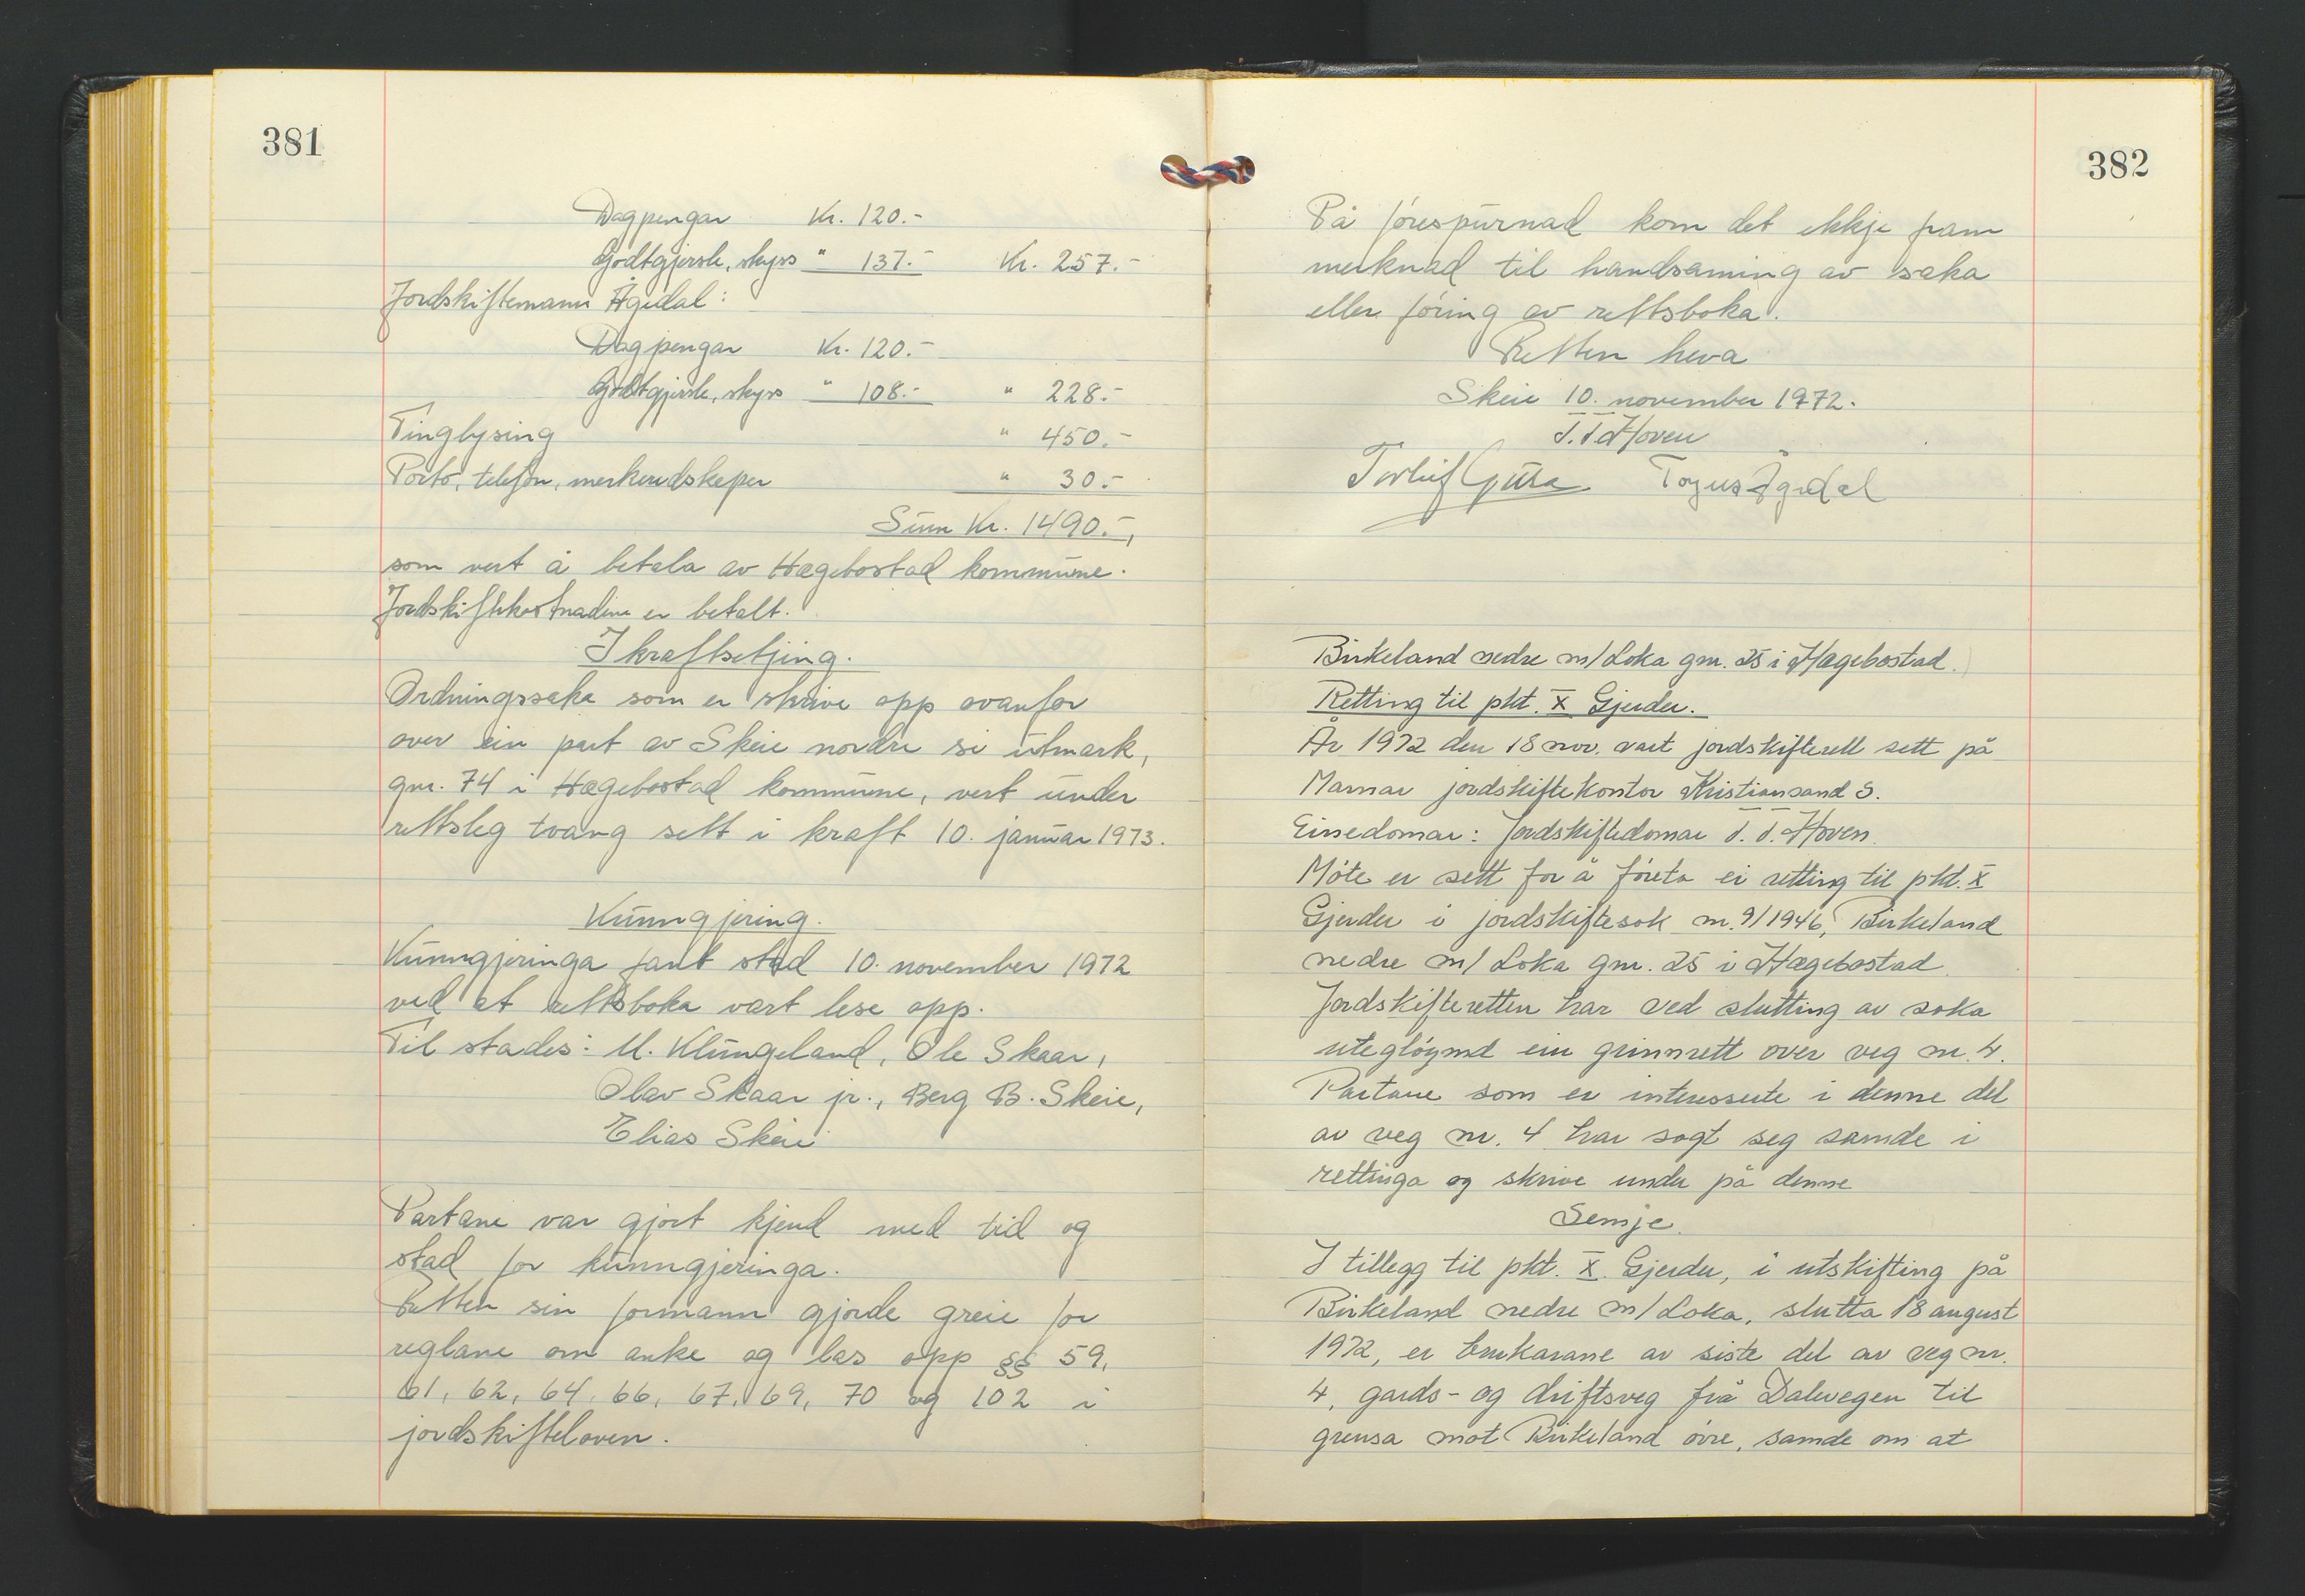 381
Dagpengar Kr. 120.-
Godtgjersle, skyss " 137.- Kr. 257.-
Jordskiftemann Ågedal:
Dagpengar Kr. 120.-
Godtgjersle, skyss " 108.- " 228.-
Tinglysing " 450.-
Porto, telefon, merkereidskaper " 30.-
Sum Kr. 1490.-,
som vert å betala av Hægebostad kommune.
Jordskiftekostnadene er betalt.
Ikraftsetjing.
Ordningssaka som er skrive opp ovanfor
over ein part av Skeie nordre si utmark,
gnr. 74 i Hægebostad kommune, vert under
rettsleg tvang sett i kraft 10. januar 1973.
Kunngjering.
Kunngjeringa fant stad 10. november 1972
ved at rettsboka vart lese opp.
Til stades: M. Klungeland, Ole Skaar,
Olav Skaar jr., Berg B. Skeie,
Elias Skeie
Partane var gjort kjend med tid og
stad for kunngjeringa.
Retten sin formann gjorde greie for
reglane om anke og las opp §§ 59,
61, 62, 64, 66, 67, 69, 70 og 102 i
jordskifteloven.
382
På førespurnad kom det ikkje fram
merknad til handsaming av saka
eller føring av rettsboka.
Retten heva
Skeie 10. november 1972.
T. T. Hoven
Torleif Ågedal
Birkeland nedre m/Loka gnr. 25 i Hægebostad.
Retting til pkt. X Gjerder.
År 1972 den 18 nov. vart jordskifterett sett på
Marnar jordskiftekontor Kristiansand S.
Einedomar: Jordskiftedomar T. T. Hoven.
Møte er sett for å føreta ei retting til pkt. X
Gjerder i jordskiftesak nr. 9/1946, Birkeland
nedre m/ Loka gnr. 25 i Hægebostad.
Jordskifteretten har ved slutting av saka
utegløymd ein grinnrett over veg nr. 4.
Partane som er interesserte i denne del
av veg nr. 4 har sagt seg samde i
rettinga og skrive under på denne
Semje.
I tillegg til pkt. X. Gjerder, i utskifting på
Birkeland nedre m/ Loka, slutta 18 august
1972, er brukarane av siste del av veg nr.
4, gards- og driftsveg frå Dalevegen til
grensa mot Birkeland øvre, samde om at